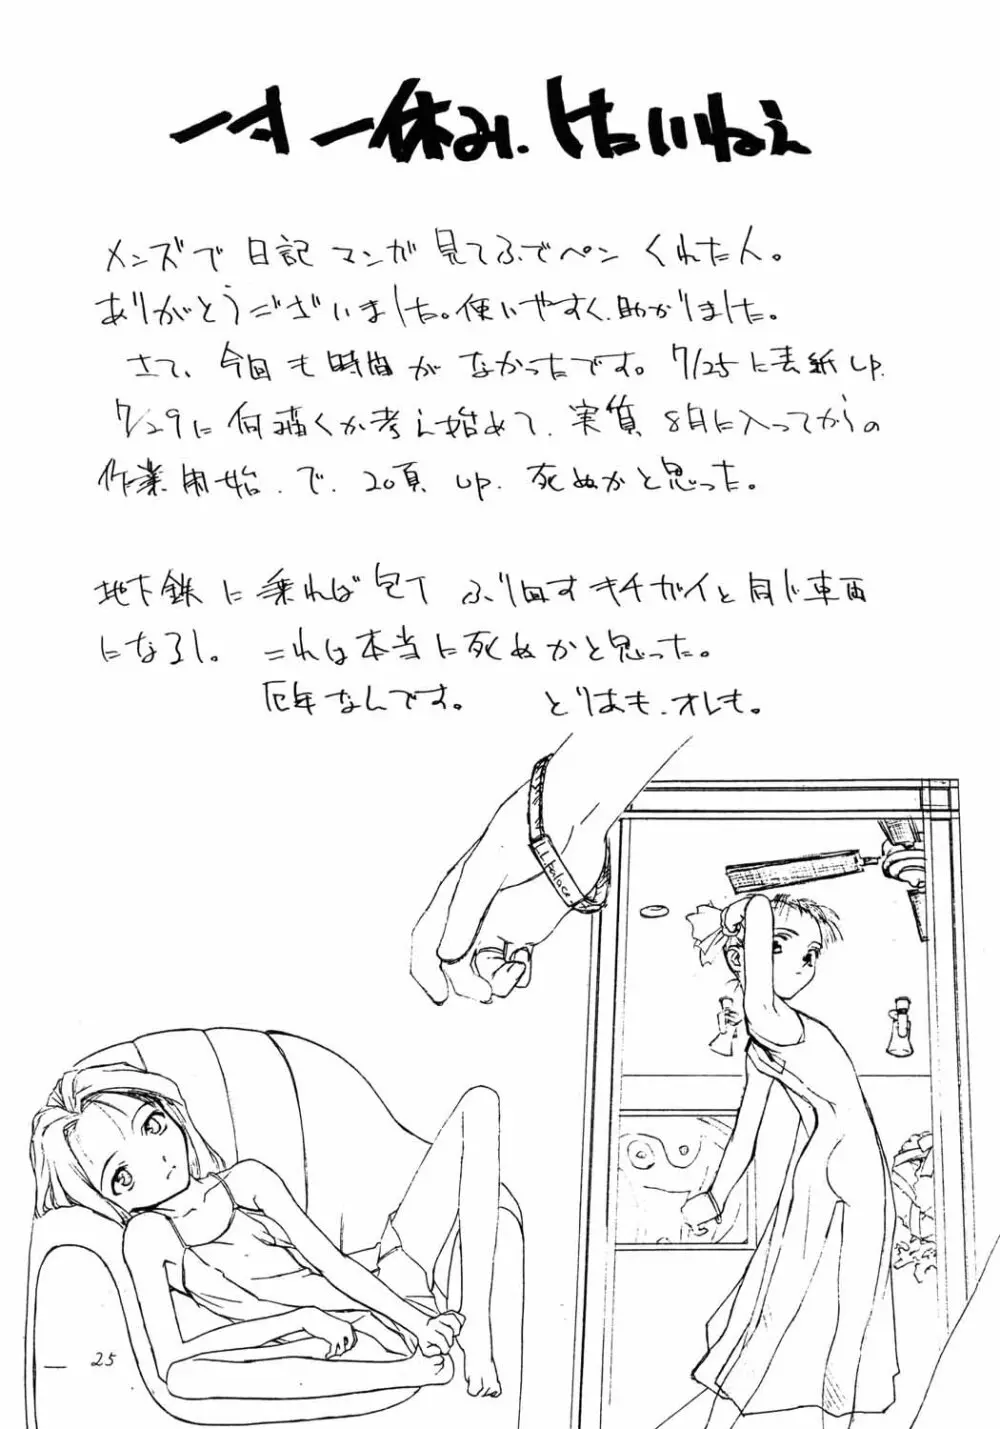 一寸一休み、
メンズで日記マンガ見てふでペンくれた人。
ありがとうございました。使いやすく、助かりました。
さて、今回も時間がなかったです。7/25に表紙up.
7/29に何描くか考え始めて、実質8月に入ってからの
作業開始、で、20頁up. 死ぬかと思った。
地下鉄に乗れば包丁ふり回すキチガイと同じ車両
になるし。これは本当に死ぬかと思った。
厄年なんです。とりあも、オレも。
25